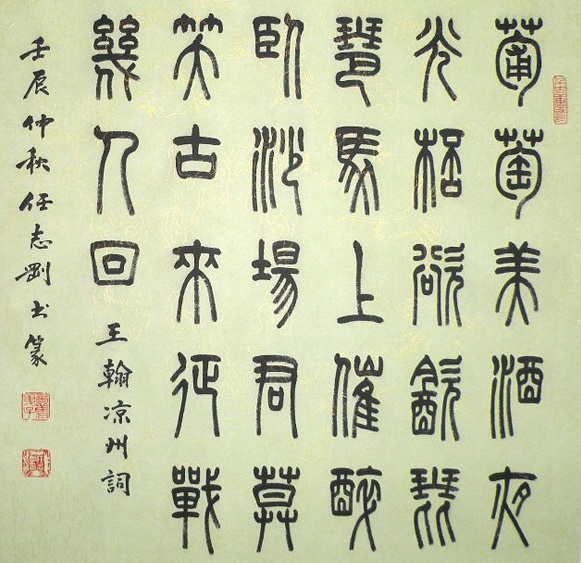 葡萄美酒夜
光桮欲飲琵
琶馬上催醉
臥沙場君莫
笑古來征戰
幾人回
王翰凉州詞
壬辰仲秋任志剛书篆